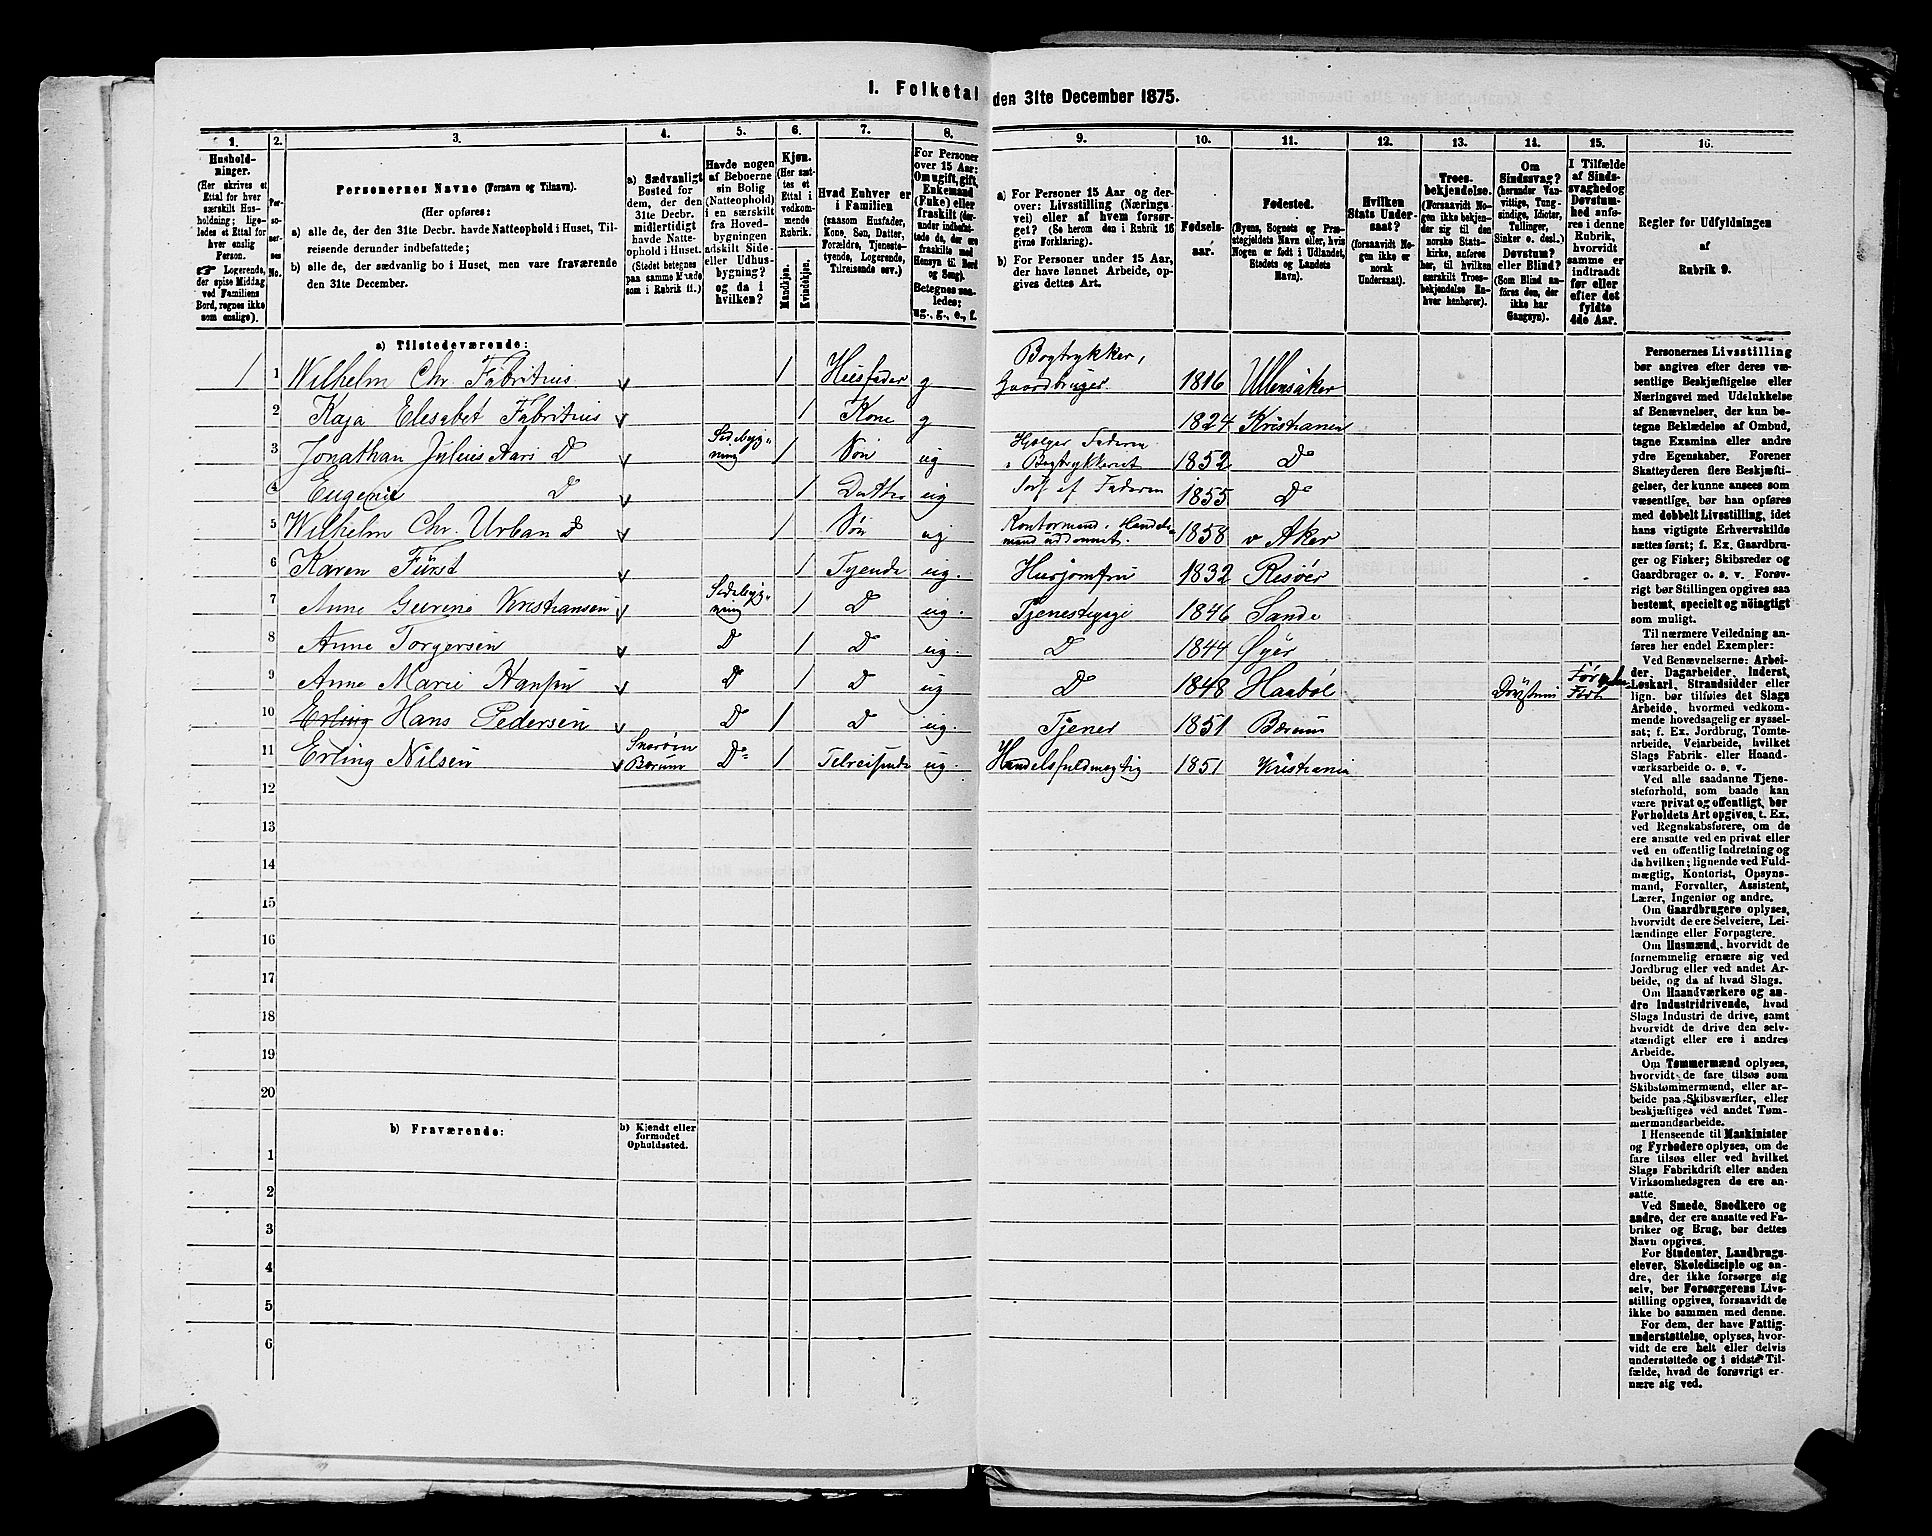 1. Folketal den 31te December 1875.
1.
2.
3.
4.
5.
6.
7.
8.
9.
10.
11.
12.
13.
14.
15.
16.
Husholdninger.
(Her skrives et
Ettal for hver
særskilt Husholdning;
ligeledes et Ettal for
hver enslig
Person.
☞ Logerende,
der spise Middag
ved Familiens
Bord, regnes ikke
som enslige).
Personernes No.
Personernes Navne (Fornavn og Tilnavn).
(Her opføres:
a) alle de, der den 31te Decbr. havde Natteophold i Huset, Tilreisende derunder indbefattede;
b) alle de, der sædvanlig bo i Huset, men vare fraværende
den 31te December.
a) Sædvanligt
Bosted for
dem, der den
31te Decbr.
midlertidigt
havde Natteophold i Huset.
(Stedet betegnes
paa samme Maade
som i Rubrik 11.)
Havde nogen
af Beboerne
sin Bolig
(Natteophold)
i en særskilt
fra Hovedbygningen
adskilt Side-
eller Udhusbygning?
og da i
hvilken?
Kjøn.
(Her sættes et
Ettal i
vedkommende
Rubrik.
Mandkjøn.
Kvindekjøn.
Hvad Enhver er
i Familien
(saasom Husfader,
Kone, Søn, Datter,
Forældre, Tjenestetyende, Logerende,
Tilreisende osv.)
For Personer
over 15 Aar:
Om ugift, gift,
Enkemand
(Enke) eller
fraskilt
Betegnes saaledes:
ug., g., e., f.
a) For Personer 15 Aar og derover: Livsstilling (Næringsvei) eller af hvem forsørget? (Se herom den i Rubrik 16
givne Forklaring).
b) For Personer under 15 Aar,
der have lønnet Arbeide, opgives dettes Art.
Fødselsaar.
Fødested.
(Byens, Sognets og Præstegjeldets Navn eller, hvis
Nogen er født i Udlandet,
Stedets og Landets
Navn).
Hvilken
Stats Undersaat?
(forsaavidt Nogen ikke er
norsk
Undersaat).
Troesbekjendelse.
(Forsaavidt Nogen ikke bekjender sig til den
norske Statskirke, anføres
her, til hvilken
særskilt Troesbekjendelse Enhver henhører).
Om
Sindssvag?
(herunder Vanvittige, Tungsindige, Idioter,
Tullinger,
Sinker o. desl.)
Døvstum?
eller Blind?
(Som Blind anføres den, der
ikke har
Gangsyn).
I Tilfælde
af Sindssvaghed og
Døvstumhed anføres i denne
Rubrik,
hvorvidt
samme er
indtraadt
før eller
efter det
fyldte
4de Aar.
Regler for Udfyldningen
af
Rubrik 9.
a) Tilstedeværende:
1 1 Wilhelm Chr. Fabritius v 1 Husfader g Bogtrykker, Gaardbruger. 1816 Ullensaker
2 Kaja Elisabet Fabritius v 1 Kone g 1824 Kristiania
3 Jonathan Julius Aars D v Sidebygning 1 Søn ug Hjælper Faderen i Bogtrykkeriet 1852 D
4 Eugenie D v 1 Datter ug Fors. af Faderen 1855 D
5 Wilhelm Chr. Urban D v 1 Søn ug Kontormand, Handelsmand uddannet. 1858 v Aker
6 Karen Fürst v 1 Tyende ug. Husjomfru 1832 Risöer
7 Anne Gurine Kristiansen v Sidebygning 1 D ug. Tjenestepige 1846 Sande
8 Anne Torgersen v D 1 D ug. D 1844 Øyer
9 Anne Marie Hansen v D 1 D ug D 1848 Haabøl Døvstum Før
10 Erling Hans Pedersen v D 1 D ug. Tjener 1851 Bærum
11 Erling Nilsen v Snarøen Bærum Do 1 Tilreisende ug. Handelsfuldmægtig 1851 Kristiania
12
13
14
15
16
17
18
19
20
b) Fraværende:
b) Kjendt eller
formodet
Opholdssted.
1
2
3
4
5
6
Personernes Livsstilling
bør angives efter deres væsentlige Beskjæftigelse eller
Næringsvei med Udelukkelse
af Benævnelser, der kun betegne Beklædelse af Ombud,
tagne Examina eller andre
ydre Egenskaber. Forener
Skatteyderen flere Beskjæftigelser, der kunne ansees som
væsentlige, bør han opføres
med dobbelt Livsstilling, idet
hans vigtigste Erhvervskilde
sættes først; f. Ex. Gaardbruger og Fisker; Skibsreder og
Gaardbruger o. s. v. Forøvrigt bør Stillingen opgives saa
bestemt, specielt og nöiagtigt
som muligt.
Til nærmere Veiledning anføres her endel Exempler:
Ved Benævnelserne: Arbeider, Dagarbeider, Inderst,
Løskarl, Strandsidder eller
lign. bør tilføies det Slags
Arbeide, hvormed vedkommende hovedsagelig er sysselsat; f. Ex. Jordbrug, Tomtearbeide, Veiarbeide, hvilket
Slags Fabrik- eller Haandværksarbeide o. s. v.
Ved alle saadanne Tjenesteforhold, som baade kan
være privat og offentligt, bør
Forholdets Art opgives, f. Ex.
ved Regnskabsførere, om de
ere ansatte ved en privat eller
ved en offentlig Indretning og
da hvilken; lignende ved Fuldmægtig, Kontorist, Opsynsmand, Forvalter, Assistent,
Lærer, Ingeniør og andre.
Om Gaardbrugere oplyses,
hvorvidt de ere Selveiere, Leilændinge eller Forpagtere.
Om Husmænd, hvorvidt de
fornemmelig ernære sig ved
Jordbrug eller ved andet Arbeide, og da af hvad Slags.
Om Haandværkere og andre Industridrivende, hvad
Slags Industri de drive, samt
hvorvidt de drive den selvstændigt eller ere i andres
Arbeide.
Om Tømmermænd oplyses,
hvorvidt de fare tilsøs som
Skibstømmermænd, eller arbeide paa Skibsværfter, eller
beskjæftiges ved andet Tømmermandsarbeide.
I Henseende til Maskinister
og Fyrbødere oplyses, om de
fare tilsøs eller ved hvilket
Slags Fabrikdrift eller anden
Virksomhedsgren de ere ansatte.
Ved Smede, Snedkere og
andre, der ere ansatte ved Fabriker og Brug, bør dettes
Navn opgives.
For Studenter, Landbrugselever, Skoledisciple og andre, der ikke forsørge sig
selv, bør Forsørgerens Livsstilling opgives, forsaavidt de
ikke bo sammen med denne.
For dem, der have Fattigunderstøttelse, oplyses, hvorvidt de ere helt eller delvis
understøttede og i sidste Tilfælde, hvad de forøvrigt ernære sig ved.